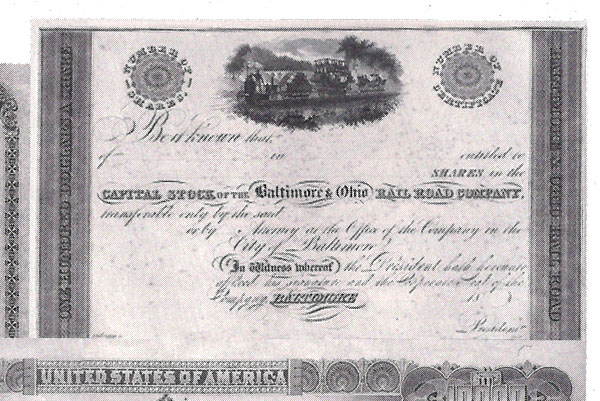 NUMBER OF
SHARES.
NUMBER OF
CERTIFICATE
ONE HUNDRED DOLLARS A SHARE
Be it known that
of in entitled to
SHARES in the
CAPITAL STOCK OF THE Baltimore & Ohio RAIL ROAD COMPANY,
transferable only by the said
or by Attorney at the Office of the Company in the
City of Baltimore
In Witness whereof the President hath hereunto
and the Seal of the
Company, BALTIMORE 18
President
UNITED STATES OF AMERICA